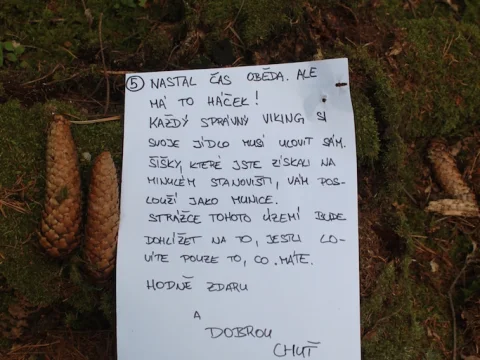 5 NASTAL ČAS OBĚDA. ALE
MÁ TO HÁČEK!
KAŽDÝ SPRÁVNÝ VIKING SI
SVOJE JÍDLO MUSÍ ULOVIT SÁM.
ŠIŠKY, KTERÉ JSTE ZÍSKALI NA
MINULÉM STANOVIŠTI, VÁM POS-
LOUŽÍ JAKO MUNICE.
STRÁŽCE TOHOTO ÚZEMÍ BUDE
DOHLÍŽET NA TO, JESTLI LO-
VÍTE POUZE TO, CO MÁTE.
HODNĚ ZDARU
A
DOBROU
CHUŤ